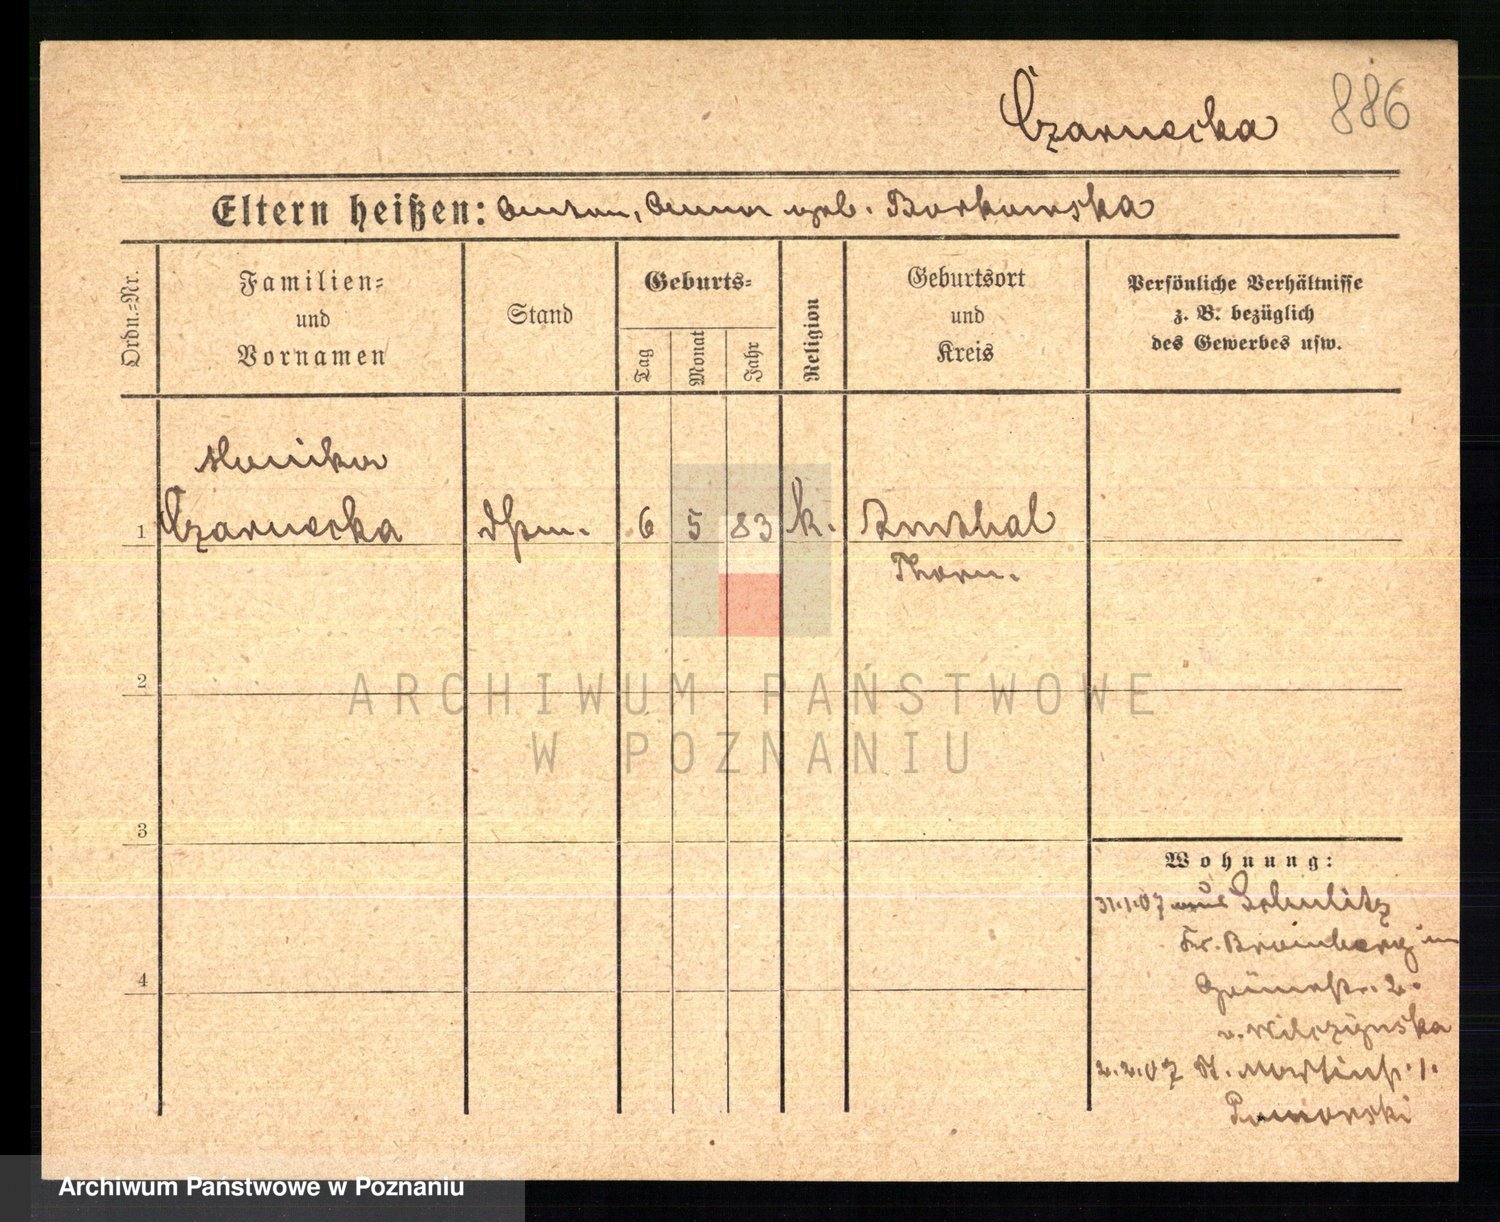 Czarnecka 886
Eltern heißen: Anton, Anna geb. Borkowska
Ordn.=Nr.
Familien=
und
Vornamen
Stand
Geburts=
Tag
Monat
Jahr
Religion
Geburtsort
und
Kreis
Persönliche Verhältnisse
z. B. bezüglich
des Gewerbes usw.
Monika
1 Czarnecka 6 5 83 k.
Thorn.
2
3
4
Wohnung:
31.1.07 aus Schulitz
Kr. Bromberg in
Grünestr. 2.
v. Wilczynska
2.2.07 St. Martinstr. 1.
Pomorski
ARCHIWUM PAŃSTWOWE
W POZNANIU
Archiwum Państwowe w Poznaniu